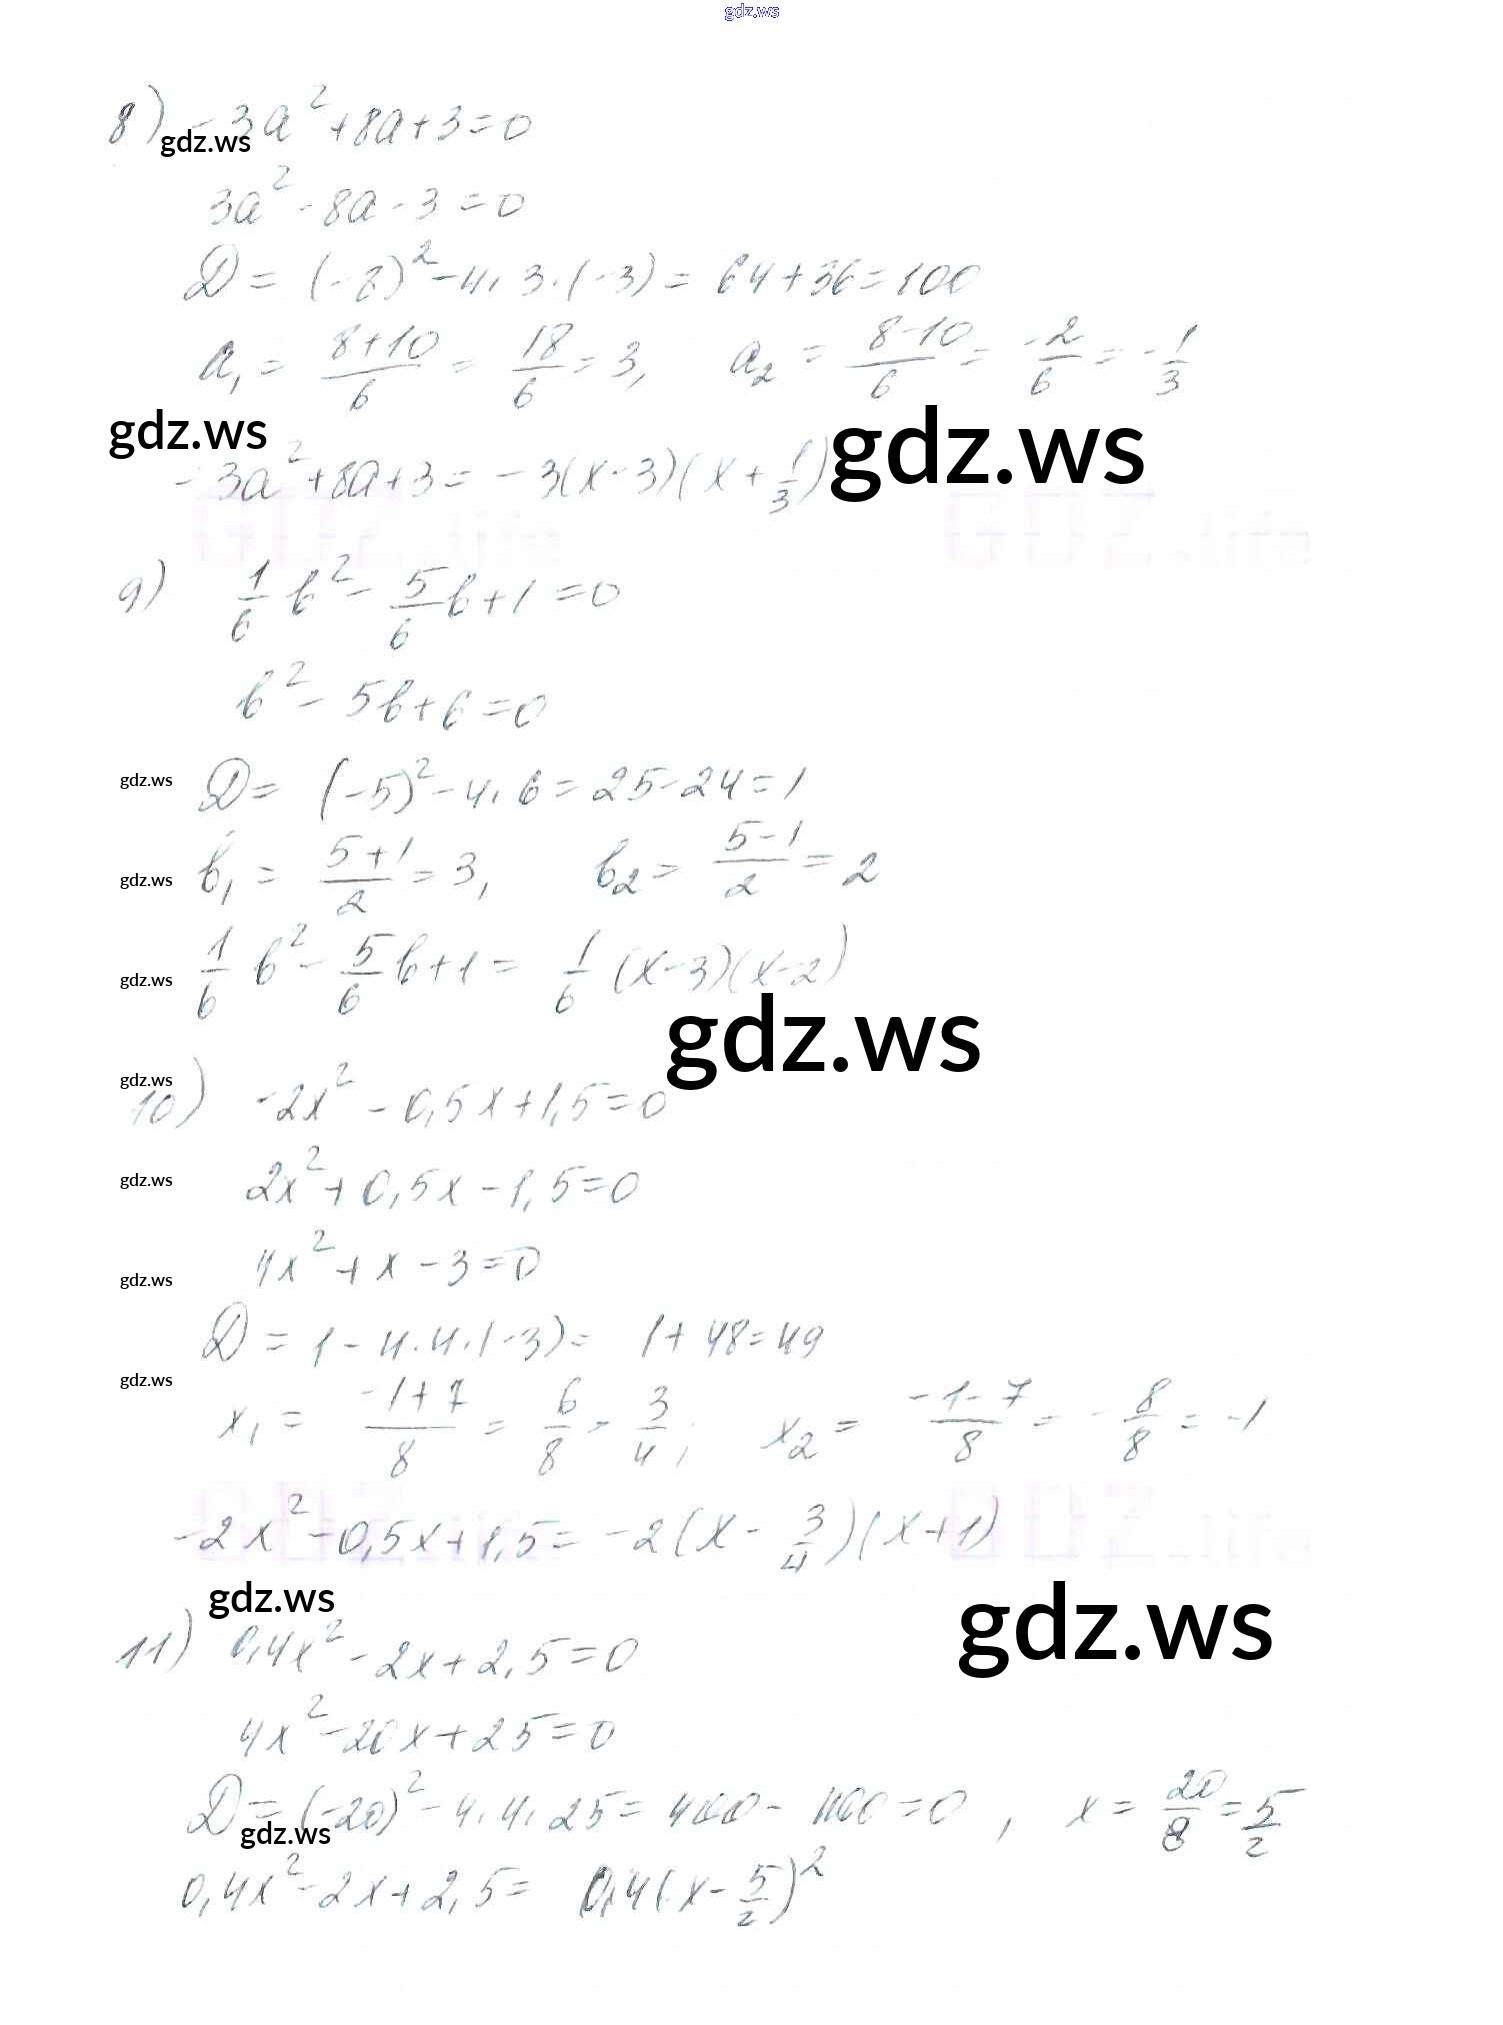 gdz.ws
8) -3a² + 8a + 3 = 0
gdz.ws
3a² - 8a - 3 = 0
D = (-8)² - 4 · 3 · (-3) = 64 + 36 = 100
a₁ = (8+10)/6 = 18/6 = 3, a₂ = (8-10)/6 = -2/6 = -1/3
gdz.ws gdz.ws
-3a² + 8a + 3 = -3(x - 3)(x + 1/3)
9) 1/6 b² - 5/6 b + 1 = 0
b² - 5b + 6 = 0
gdz.ws D = (-5)² - 4 · 6 = 25 - 24 = 1
gdz.ws b₁ = (5+1)/2 = 3, b₂ = (5-1)/2 = 2
gdz.ws 1/6 b² - 5/6 b + 1 = 1/6 (x - 3)(x - 2)
gdz.ws
gdz.ws
10) -2x² - 0,5x + 1,5 = 0
gdz.ws 2x² + 0,5x - 1,5 = 0
gdz.ws 4x² + x - 3 = 0
D = 1 - 4 · 4 · (-3) = 1 + 48 = 49
gdz.ws x₁ = (-1+7)/8 = 6/8 = 3/4; x₂ = (-1-7)/8 = -8/8 = -1
-2x² - 0,5x + 1,5 = -2(x - 3/4)(x + 1)
gdz.ws gdz.ws
11) 0,4x² - 2x + 2,5 = 0
4x² - 20x + 25 = 0
D = (-20)² - 4 · 4 · 25 = 400 - 400 = 0, x = 20/8 = 5/2
gdz.ws
0,4x² - 2x + 2,5 = 0,4(x - 5/2)²